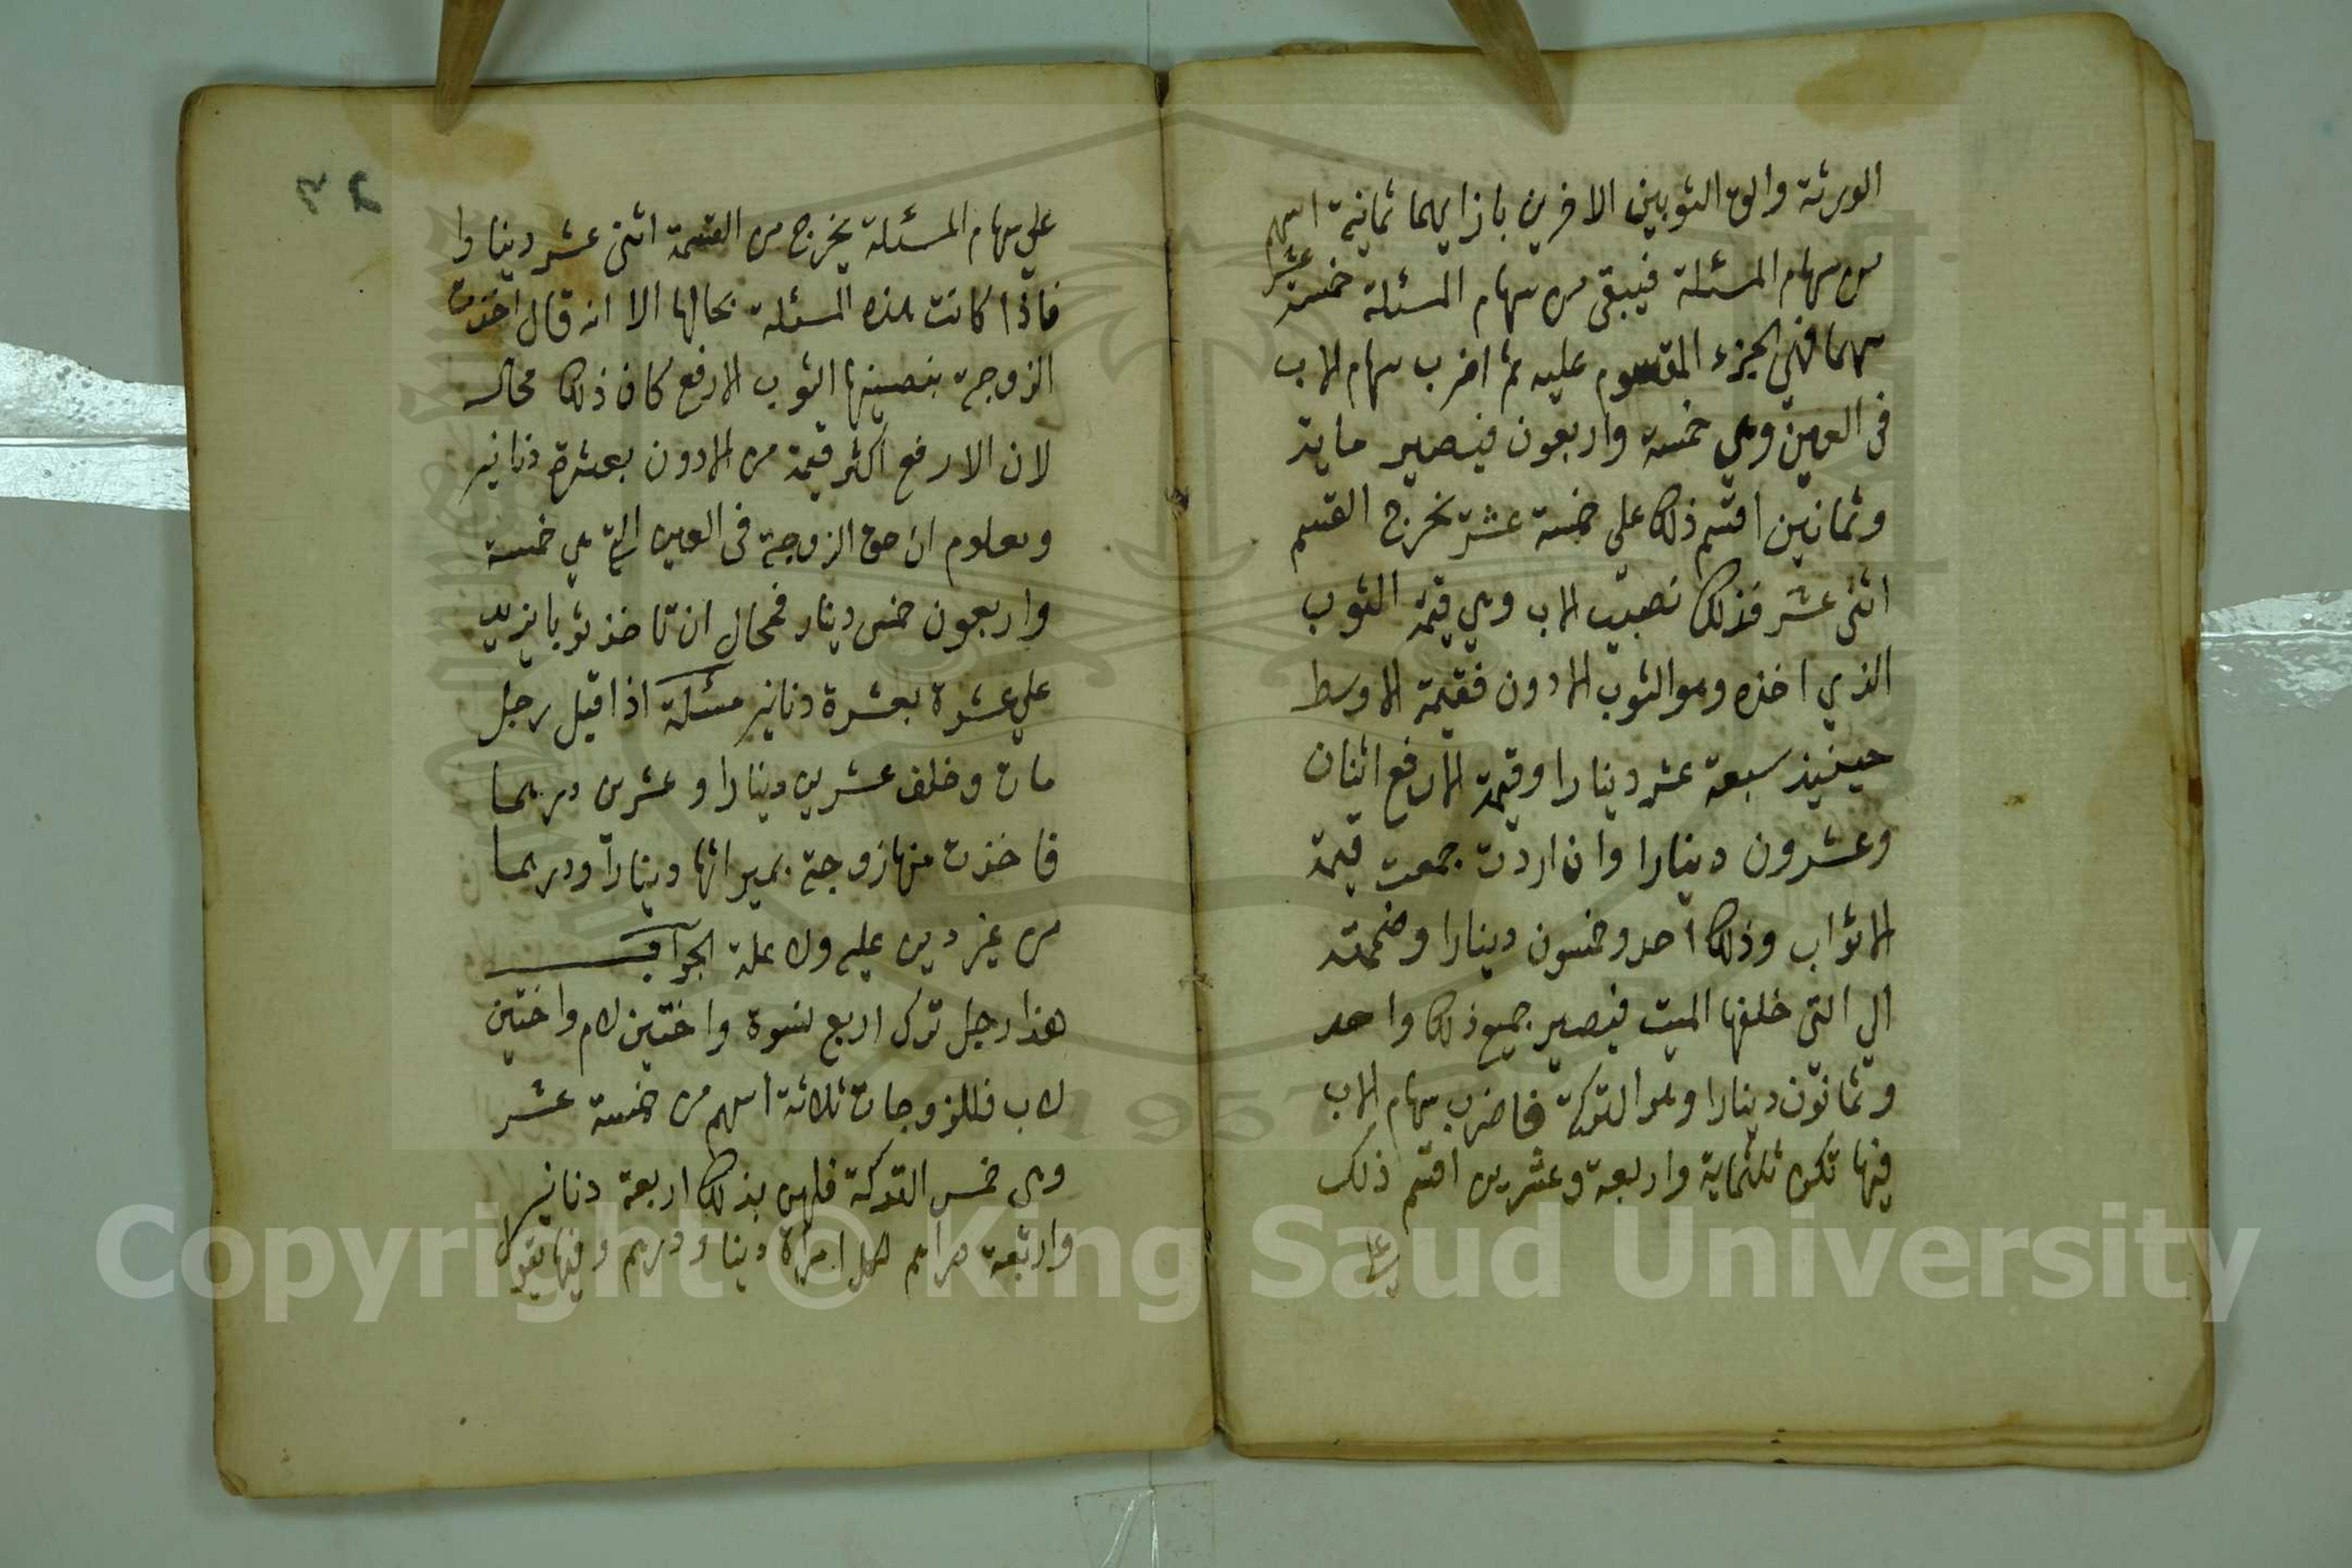 الورثة والق الثوبين الاخرين بازايهما ثمانية اسهم
من سهام المسئلة فيبقى من سهام المسئلة خمسة عشر
سهما فهي الجزء المقسوم عليه ثم اضرب سهام الاب
في العين وهي خمسة واربعون فيصير ماية
وثمانين اقسم ذلك علي خمسة عشر تخرج القسم
اثني عشر فذلك نصيب الاب وهي قيمة الثوب
الذي اخذه وهو الثوب الادون فقيمة الاوسط
حينيذ سبعة عشر دينارا وقيمة الارفع اثنان
وعشرون دينارا وان اردت جمعت قيمة
الاثواب وذلك احد وخمسون دينارا وضممته
الي التي خلفها الميت فيصير جميع ذلك واحد
وثمانون دينارا وهو التركة فاضرب سهام الاب
فيها تكون ثلثماية واربعة وعشرين اقسم ذلك
علي
علي سهام المسئلة يخرج من القسمة اثني عشر دينارا
فاذا كانت هذه المسئلة بحالها الا انه قال اخذت
الزوجة بنصيبها الثوب الارفع كان ذلك محال
لان الارفع اكثر قيمة من الادون بعشرة دنانير
ومعلوم ان حق الزوجة في العين التي هي خمسة
واربعون خمس دينار فمحال ان تاخذ ثوبا يزيد
علي عشرة بعشرة دنانير مسئلة اذا قيل رجل
مات وخلف عشرين دينارا وعشرين درهما
فاخذت منها زوجة بميراثها دينارا ودرهما
من غير دين عليه ولا علة الجواب
هذا رجل ترك اربع نسوة واختين لام واختين
لاب فللزوجات ثلاثة اسهم من خمسة عشر
وهي خمس التركة فلهن بذلك اربعة دنانير
واربعة دراهم لكل امراة دينار ودرهم وفيها يقول